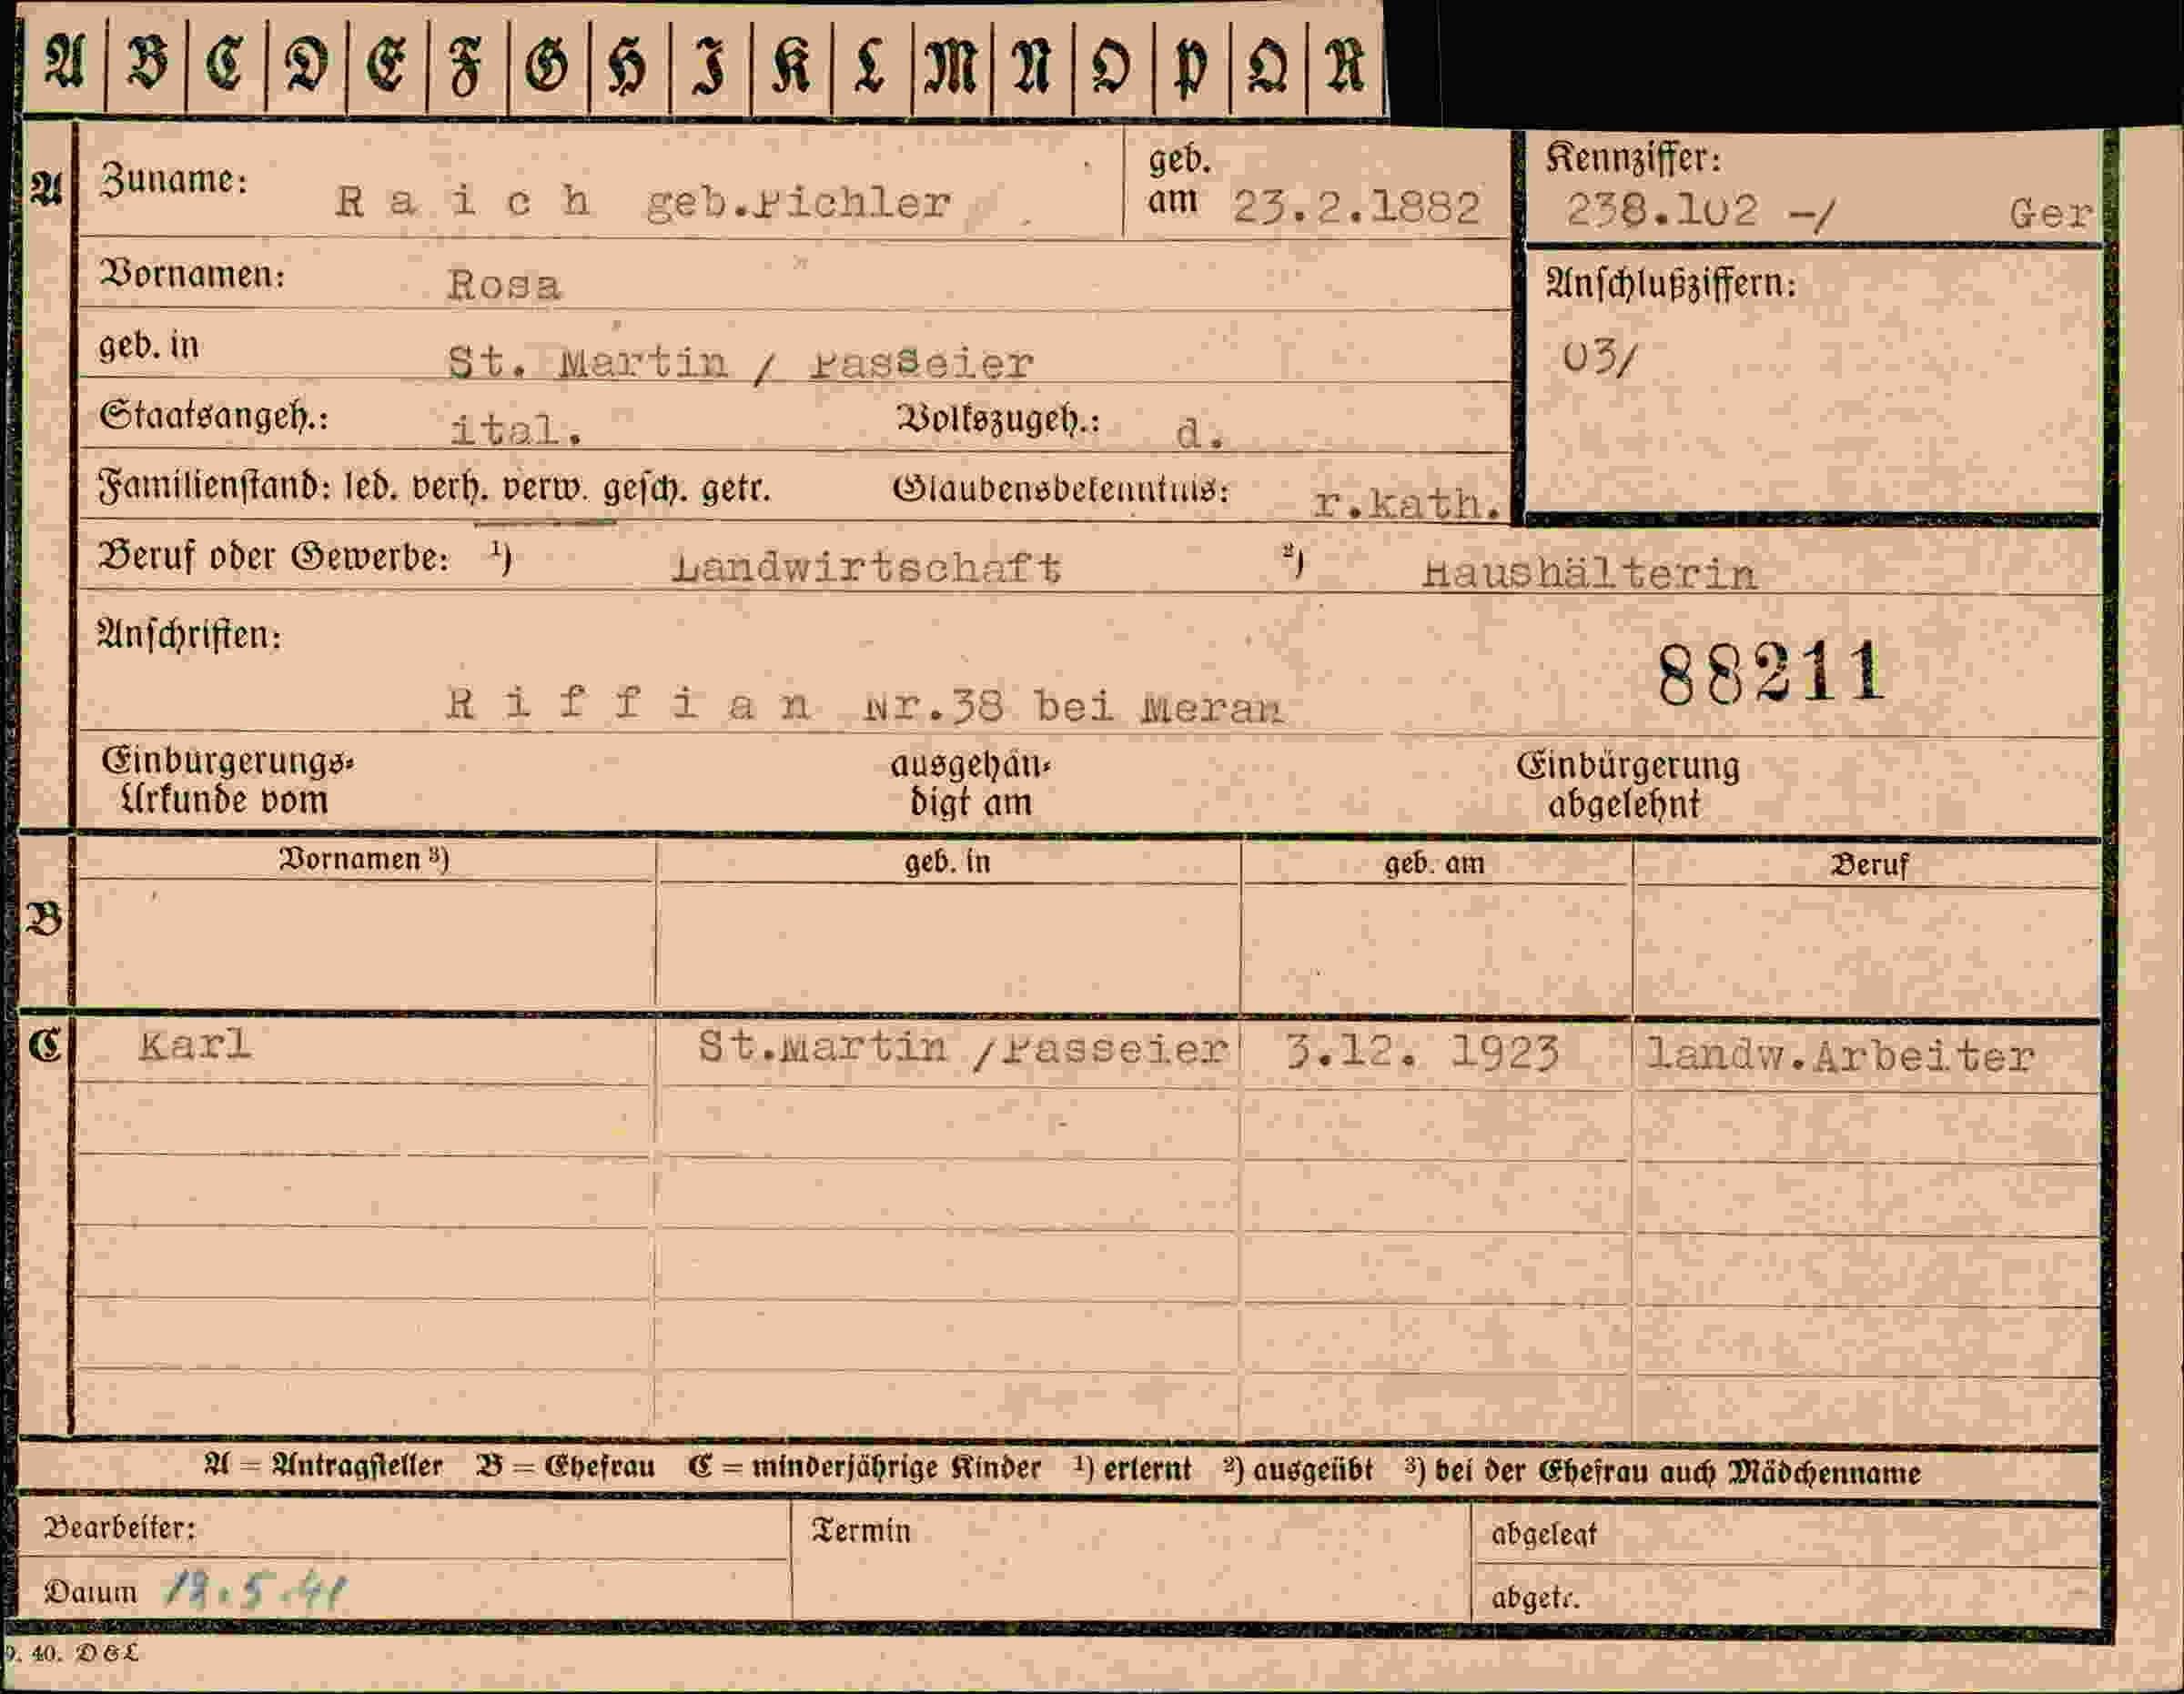 A B C D E F G H I K L M N O P Q R
A Zuname: Raich geb.Pichler geb. am 23.2.1882
Kennziffer: 238.102 -/ Ger
Vornamen: Rosa
Anschlußziffern: 03/
geb. in St. Martin / Passeier
Staatsangeh.: ital. Volkszugeh.: d.
Familienstand: led. verh. verw. gesch. getr. Glaubensbekenntnis: r.kath.
Beruf oder Gewerbe: 1) Landwirtschaft 2) Haushälterin
Anschriften:
88211
Riffian Nr.38 bei Meran
Einbürgerungs-Urkunde vom ausgehändigt am Einbürgerung abgelehnt
Vornamen 3) geb. in geb. am Beruf
B
C Karl St.Martin /Passeier 3.12. 1923 landw.Arbeiter
A = Antragsteller B = Ehefrau C = minderjährige Kinder 1) erlernt 2) ausgeübt 3) bei der Ehefrau auch Mädchenname
Bearbeiter: Termin abgelegt
Datum .5.41 abgetr.
9. 40. DGL